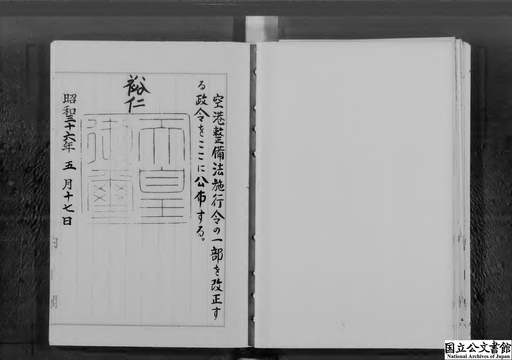 空港整備法施行令の一部を改正す
る政令をここに公布する。
裕仁
天皇
御璽
昭和三十六年五月十七日
内閣
国立公文書館
National Archives of Japan